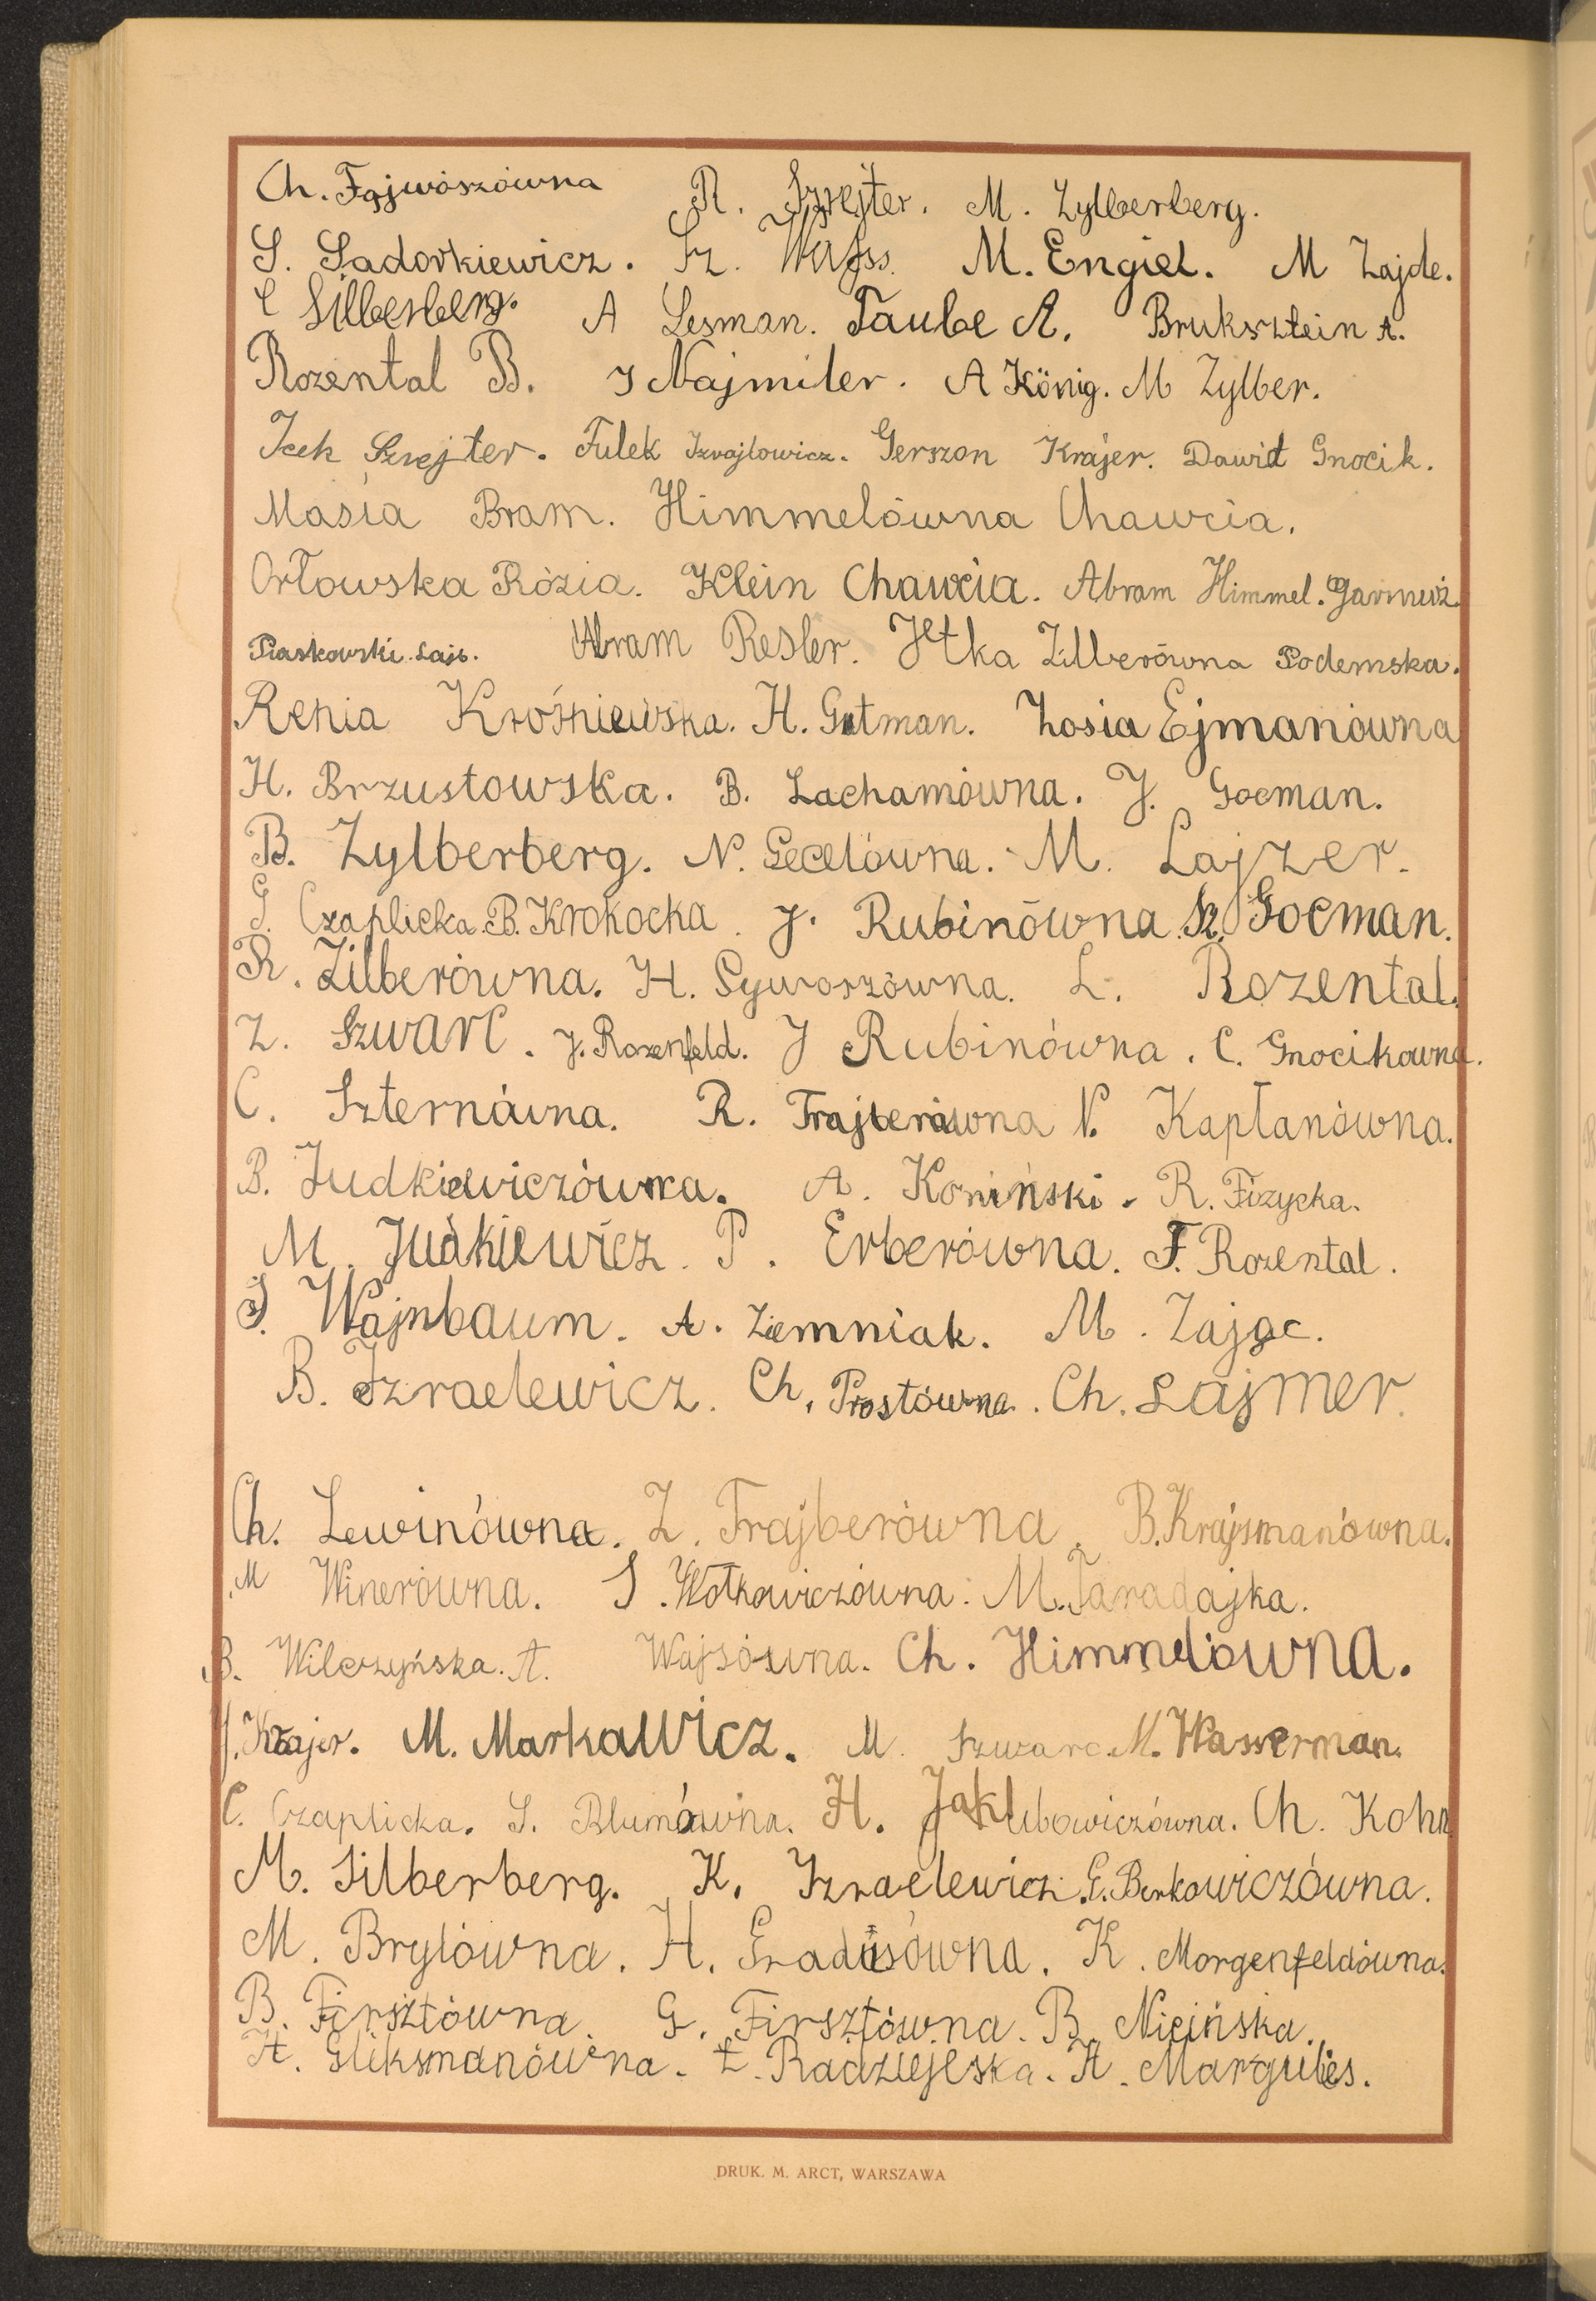 Ch. Fajwoszówna R. Szrejter. M. Zylberberg.
S. Sadorkiewicz. Sz. Wajss. M. Engiel. M Zajde.
C Silberberg. A Lesman. Taube A. Bruksztein A.
Rozental B. J Najmiler. A König. M Zylber.
Icek Szrejter. Fulek Izrajlowicz. Gerszon Krajer. Dawid Gnocik.
Masia Bram. Himmelówna Chawcia.
Orłowska Rózia. Klein Chawcia. Abram Himmel.
Piaskowski Lajb. Abram Resler. Jtka Zilberówna Podemska.
Renia Krośniewska. H. Gutman. Zosia Ejmanówna
H. Brzustowska. B. Lachamówna. J. Gocman.
B. Zylberberg. N. Gecelówna. M. Lajzer.
G. Czaplicka. B. Krokocka. J. Rubinówna. Sz. Gocman.
R. Zilberówna. H. Sywoszówna. L. Rozental.
Z. Szwarc. J. Rozenfeld. J Rubinówna. C. Gnocikowna.
C. Szternówna. R. Trajberówna N. Kapłanówna.
B. Judkiewiczówna. A. Koniński. R. Fizycka.
M. Judkiewicz. P. Erberówna. F. Rozental.
S. Wajnbaum. A. Ziemniak. M. Zając.
B. Izraelewicz. Ch. Prostówna. Ch. Lajmer.
Ch. Lewinówna. Z. Frajberówna. B. Krajsmanówna.
M Winerówna. S. Wołkowiczówna. M. Taradajka.
B. Wilczyńska. A. Wajsówna. Ch. Himmelówna.
J. Krajer. M. Markawicz. M. Szwarc. M. Wasserman.
C. Czaplicka. S. Blumówna. H. Jakubowiczówna. Ch. Kohn
M. Silberberg. K. Izraelewicz. G. Berkowiczówna.
M. Brylówna. H. Gradusówna. K. Morgenfeldówna.
B. Firsztówna. G. Firsztówna. B. Nicińska.
H. Gliksmanówna. Ł. Radziejeska. H. Margulies.
DRUK. M. ARCT, WARSZAWA